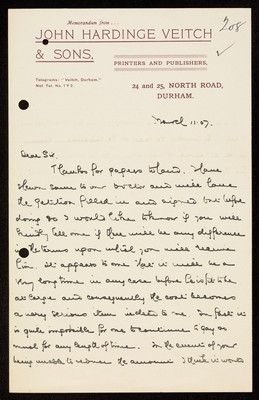 Memorandum from....
208
JOHN HARDINGE VEITCH
& SONS,
PRINTERS AND PUBLISHERS,
Telegrams: "Veitch, Durham."
Nat. Tel. No. 192.
24 and 25, NORTH ROAD,
DURHAM.
March 11. 07.
Dear Sir,
Thanks for papers to hand, I have
shewn same to our Doctor and will have
the petition filled in and signed but before
doing so I would like to know if you will
kindly tell me if there will be any difference
in the terms upon which you will receive
him. It appears to me that it will be a
very long time in any case before he is fit to be
at large and consequently the cost becomes
a very serious item indeed to me. In fact it
is quite impossible for me to continue to pay so
much for any length of time. In the event of your
being unable to reduce the amount I think it would